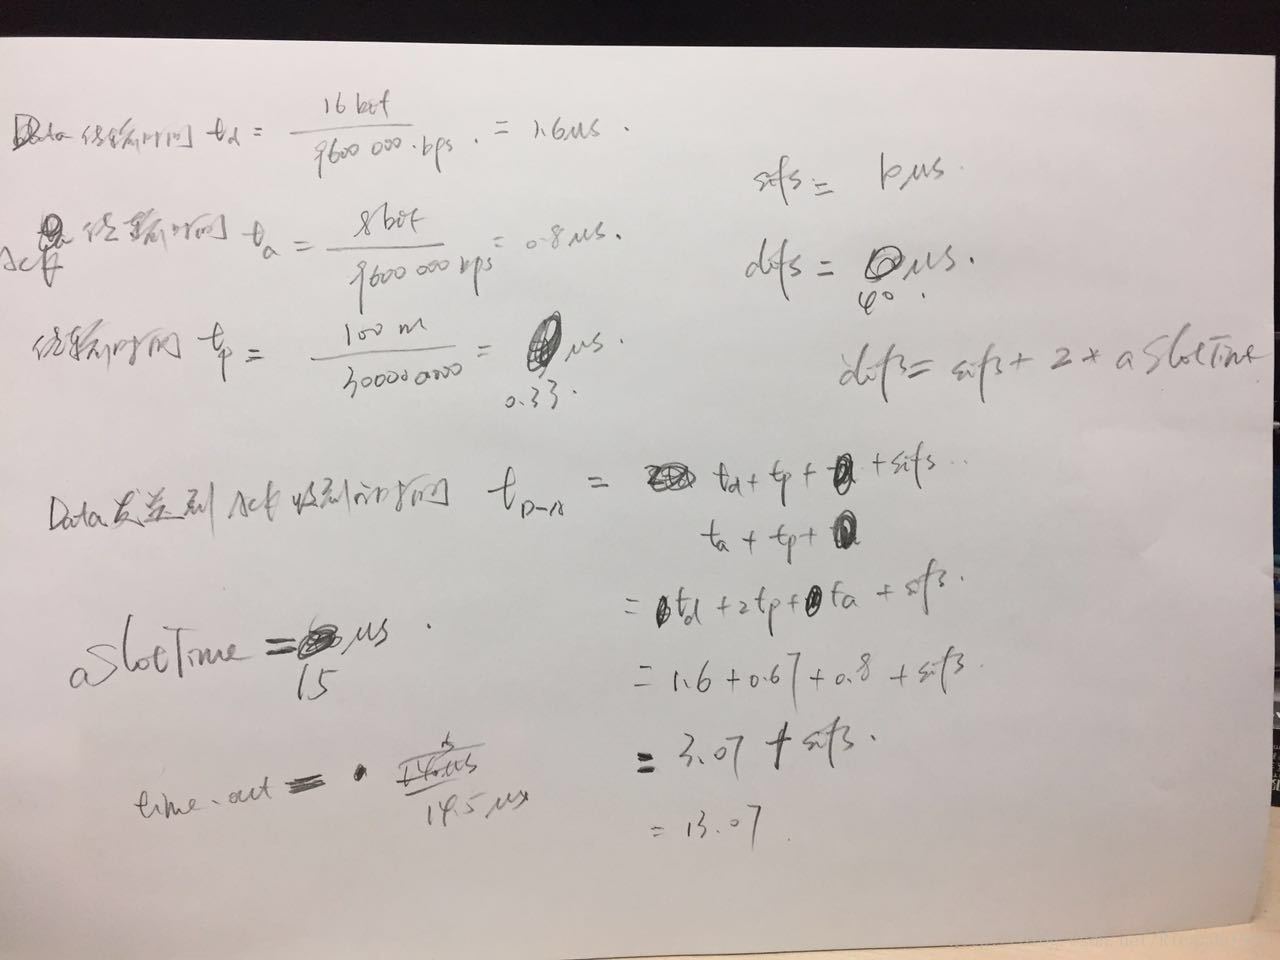 Data 传输时间 td = 16 bit / 9600 000.bps. = 1.6us.
Ack 传输时间 ta = 8bit / 9600 000 bps = 0.8us.
传输时间 tp = 100 m / 300000000 = us.
0.33.
sifs = 10us.
difs = us.
40.
difs = sifs + 2 * aSlotTime
Data发送到Ack收到的时间 tD-A = td + tp + + sifs..
ta + tp +
= td + 2tp + ta + sifs.
= 1.6 + 0.67 + 0.8 + sifs.
= 3.07 + sifs.
= 13.07.
aSlotTime = us.
15
time.out =
14.5 us